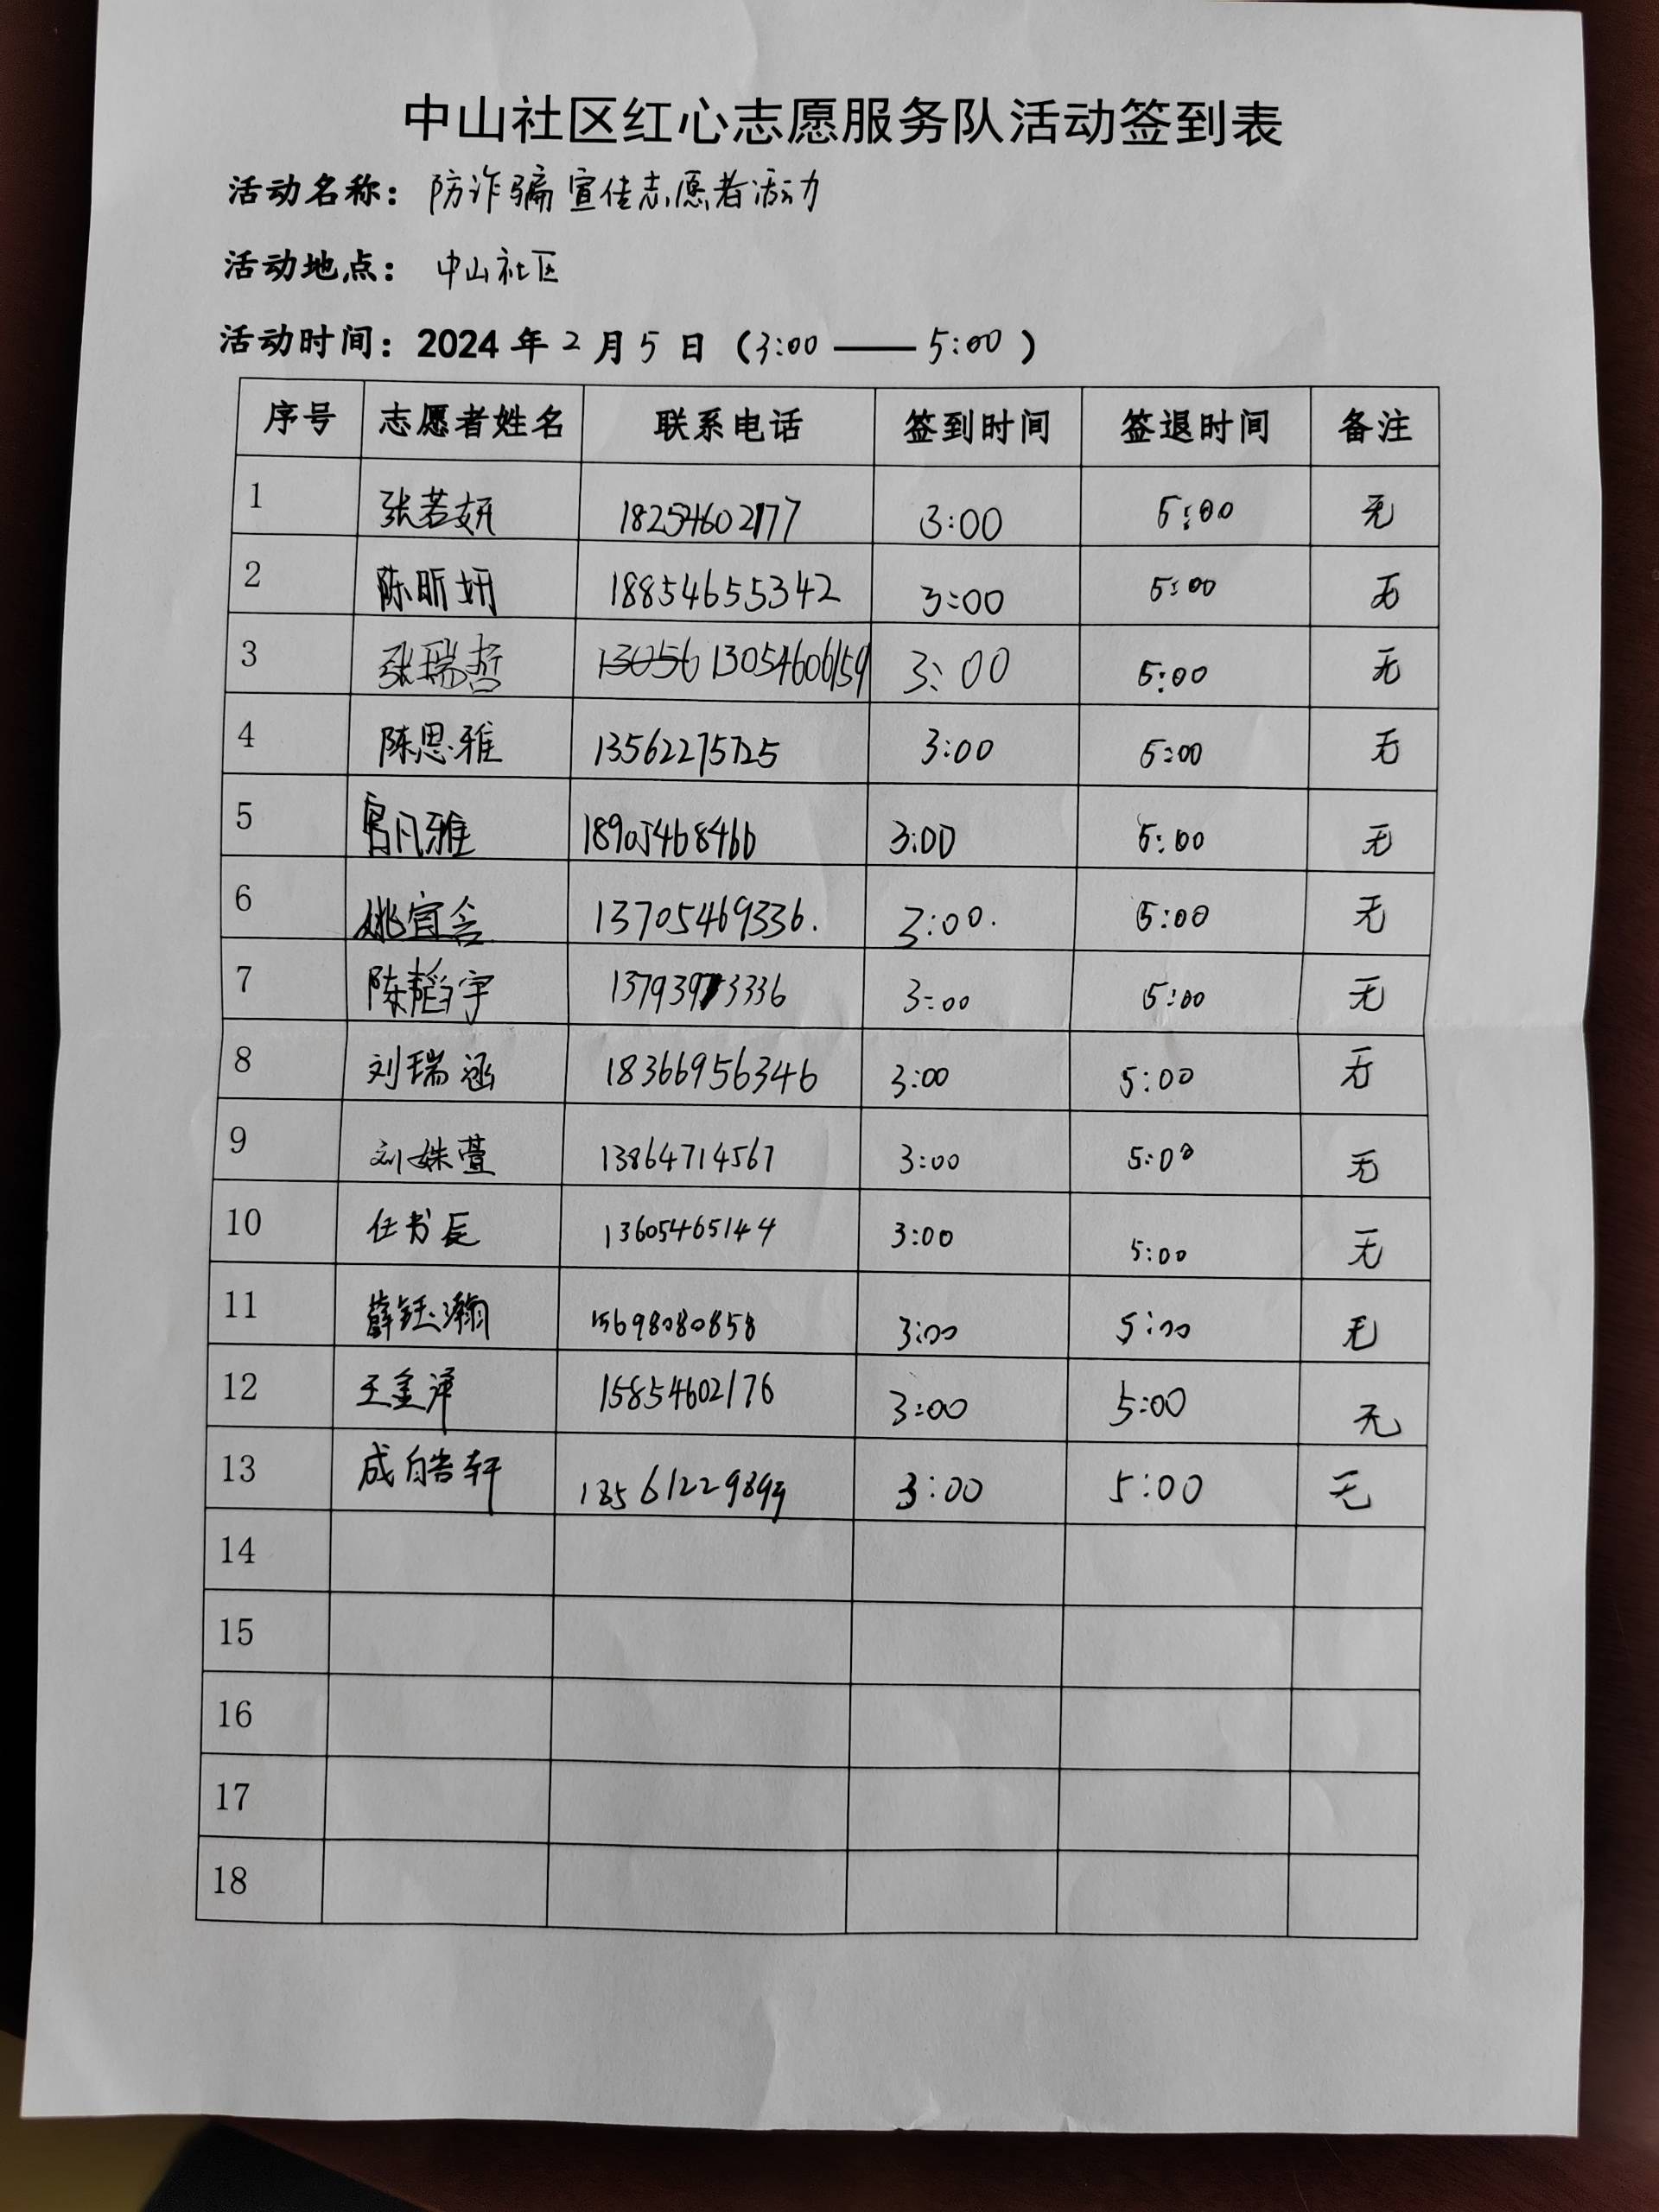 中山社区红心志愿服务队活动签到表
活动名称：防诈骗宣传志愿者活动
活动地点：中山社区
活动时间：2024 年 2 月 5 日（3:00 —— 5:00）
序号 志愿者姓名 联系电话 签到时间 签退时间 备注
1 张若妍 18254602177 3:00 5:00 无
2 陈昕妍 18854655342 3:00 5:00 无
3 张瑞哲 13056 13054606159 3:00 5:00 无
4 陈思雅 13562275725 3:00 5:00 无
5 宫凡雅 18905468466 3:00 5:00 无
6 姚宜含 13705469336. 3:00. 5:00 无
7 陈韬宇 3:00 5:00 无
8 刘瑞涵 18366956346 3:00 5:00 无
9 刘姝萱 13864714567 3:00 5:00 无
10 任书辰 13605465144 3:00 5:00 无
11 薛钰瀚 15698080858 3:00 5:00 无
12 王金泽 15854602176 3:00 5:00 无
13 成皓轩 3:00 5:00 无
14
15
16
17
18